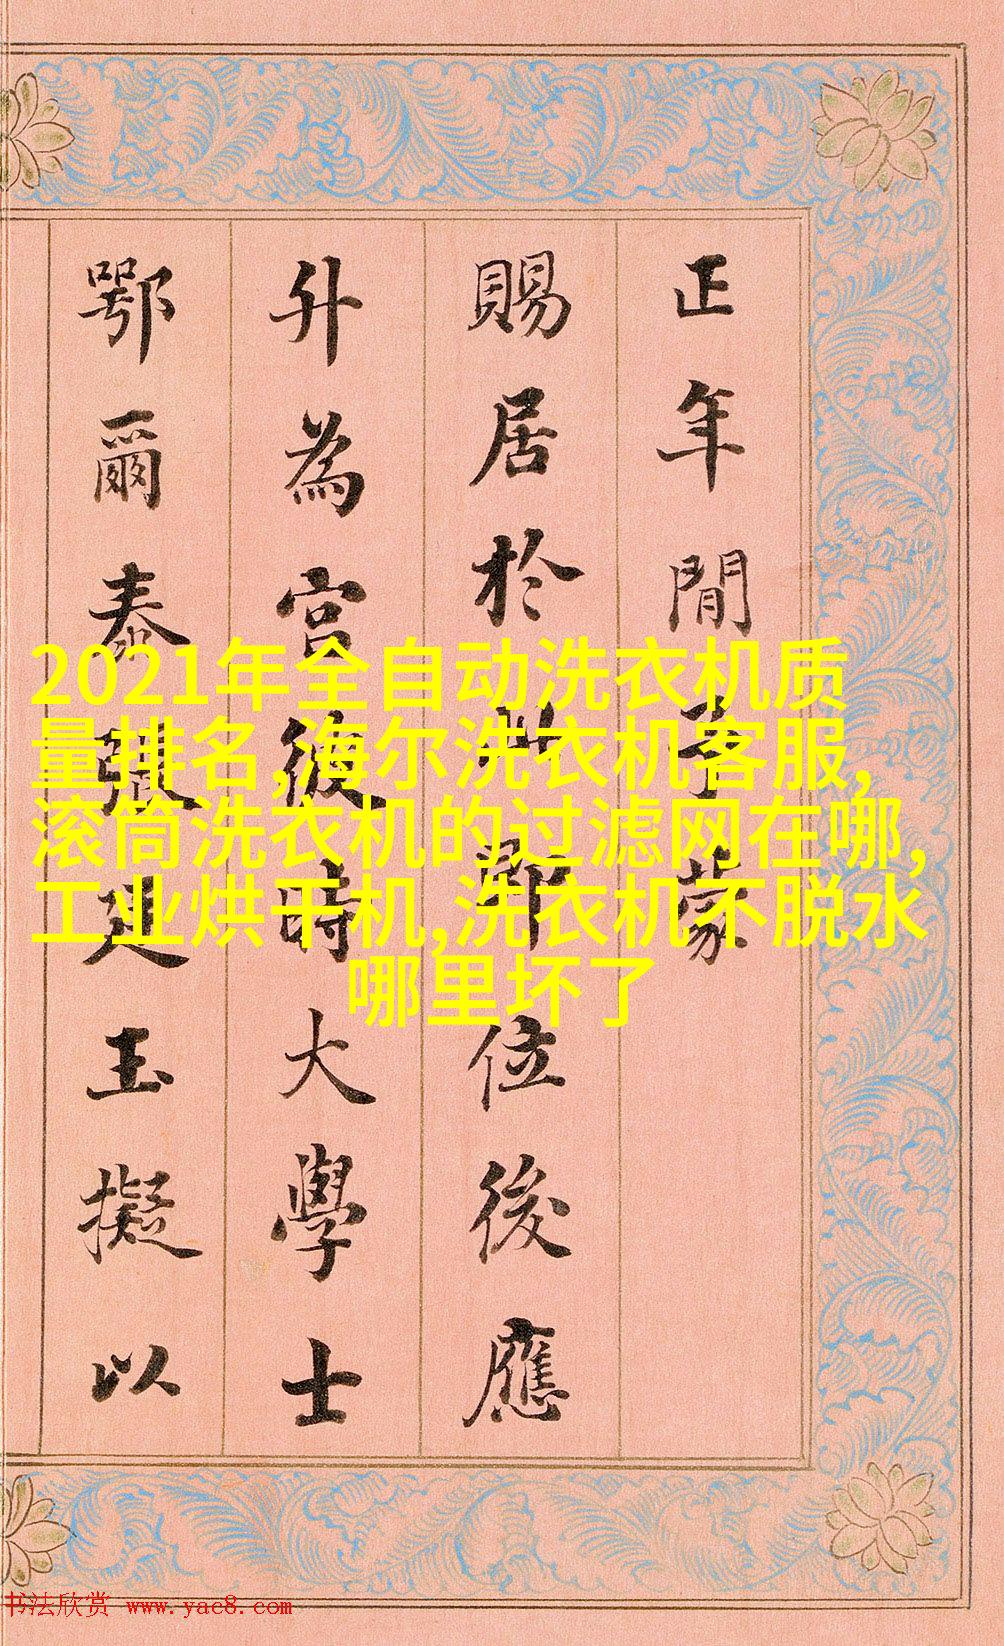 正年間予蒙
賜居於此即位後應
升為宮彼時大學士
鄂爾泰張廷玉擬以
2021年全自动洗衣机质
量排名,海尔洗衣机客服,
滚筒洗衣机的过滤网在哪,
工业烘干机,洗衣机不脱水
哪里坏了
书法欣赏 www.yac8.com